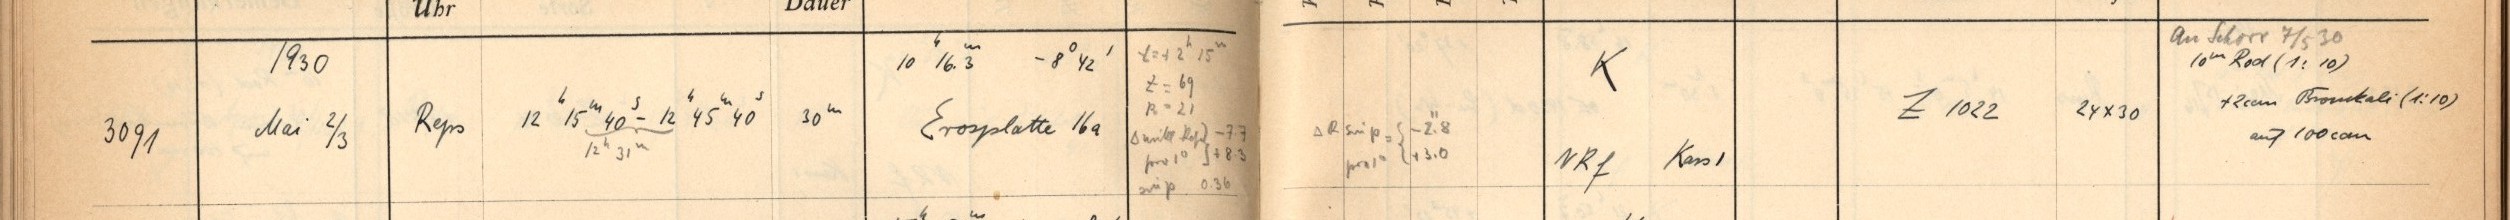 Uhr
Dauer
1930
3091
Mai 2/3
Reps
12ʰ 15ᵐ 40ˢ – 12ʰ 45ᵐ 40ˢ
12ʰ 31ᵐ
30ᵐ
10ʰ 16.3ᵐ -8° 42'
Erosplatte 16a
t=+2ʰ 15ᵐ
Z = 69
R = 21
Δ mittl Ref } -7.7
pro 1° } +8.3
sin p 0.36
Δ R sin p = { -2."8
pro 1° { +3.0
K
NRf Kass 1
Z 1022
24x30
An Schorr 7/5 30
10ᵐ Rod (1:10)
+2ccm Bromkali (1:10)
auf 100ccm